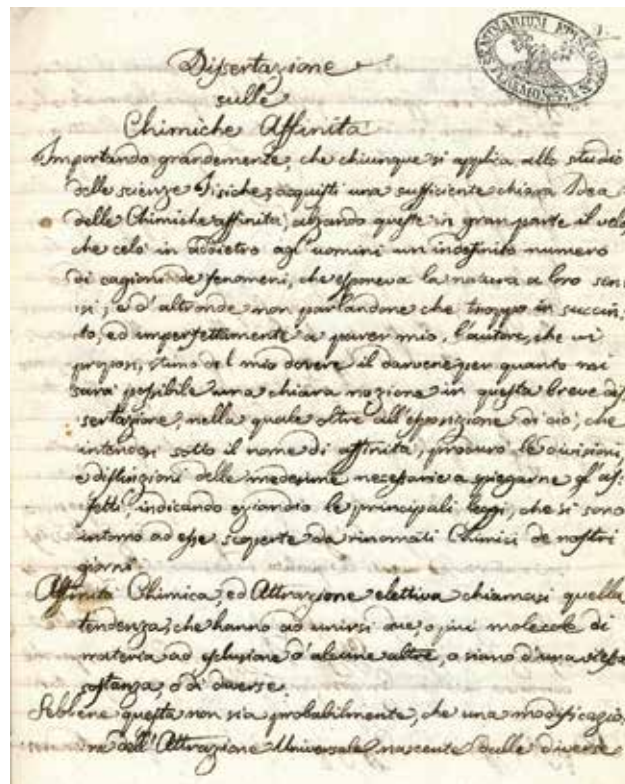 SEMINARIUM
Dissertazione
sulle
Chimiche Affinità
Importando grandemente, che chiunque si applica allo studio
delle scienze Fisiche, acquisti una sufficiente chiara Idea
delle Chimiche affinità, alzando queste in gran parte il velo,
che celò in addietro agl'uomini un indefinito numero
di cagioni de fenomeni, che esponeva la natura a loro sen
si; e d'altronde non parlandone che troppo in succin
to, ed imperfettamente a parer mio, l'autore, che vi
proposi, stimo del mio dovere il darvene per quanto mi
sarà possibile una chiara nozione in questa breve dis
sertazione, nella quale oltre all'esposizione di ciò, che
intendesi sotto il nome di affinità, produrò le divisioni,
e distinzioni delle medesime necessarie a spiegarne gl'ef
fetti, indicando eziandio le principali leggi, che si sono
intorno ad esse scoperte da rinomati Chimici de nostri
giorni.
Affinità Chimica, ed Attrazione elettiva chiamasi quella
tendenza, che hanno ad unirsi due, o più molecole di
materia ad esclusione d'alcune altre, o siano d'una stessa
sostanza, o di diverse.
Sebbene questa non sia probabilmente, che una modificazio
ne dell'Attrazione Universale, nascente dalle diverse